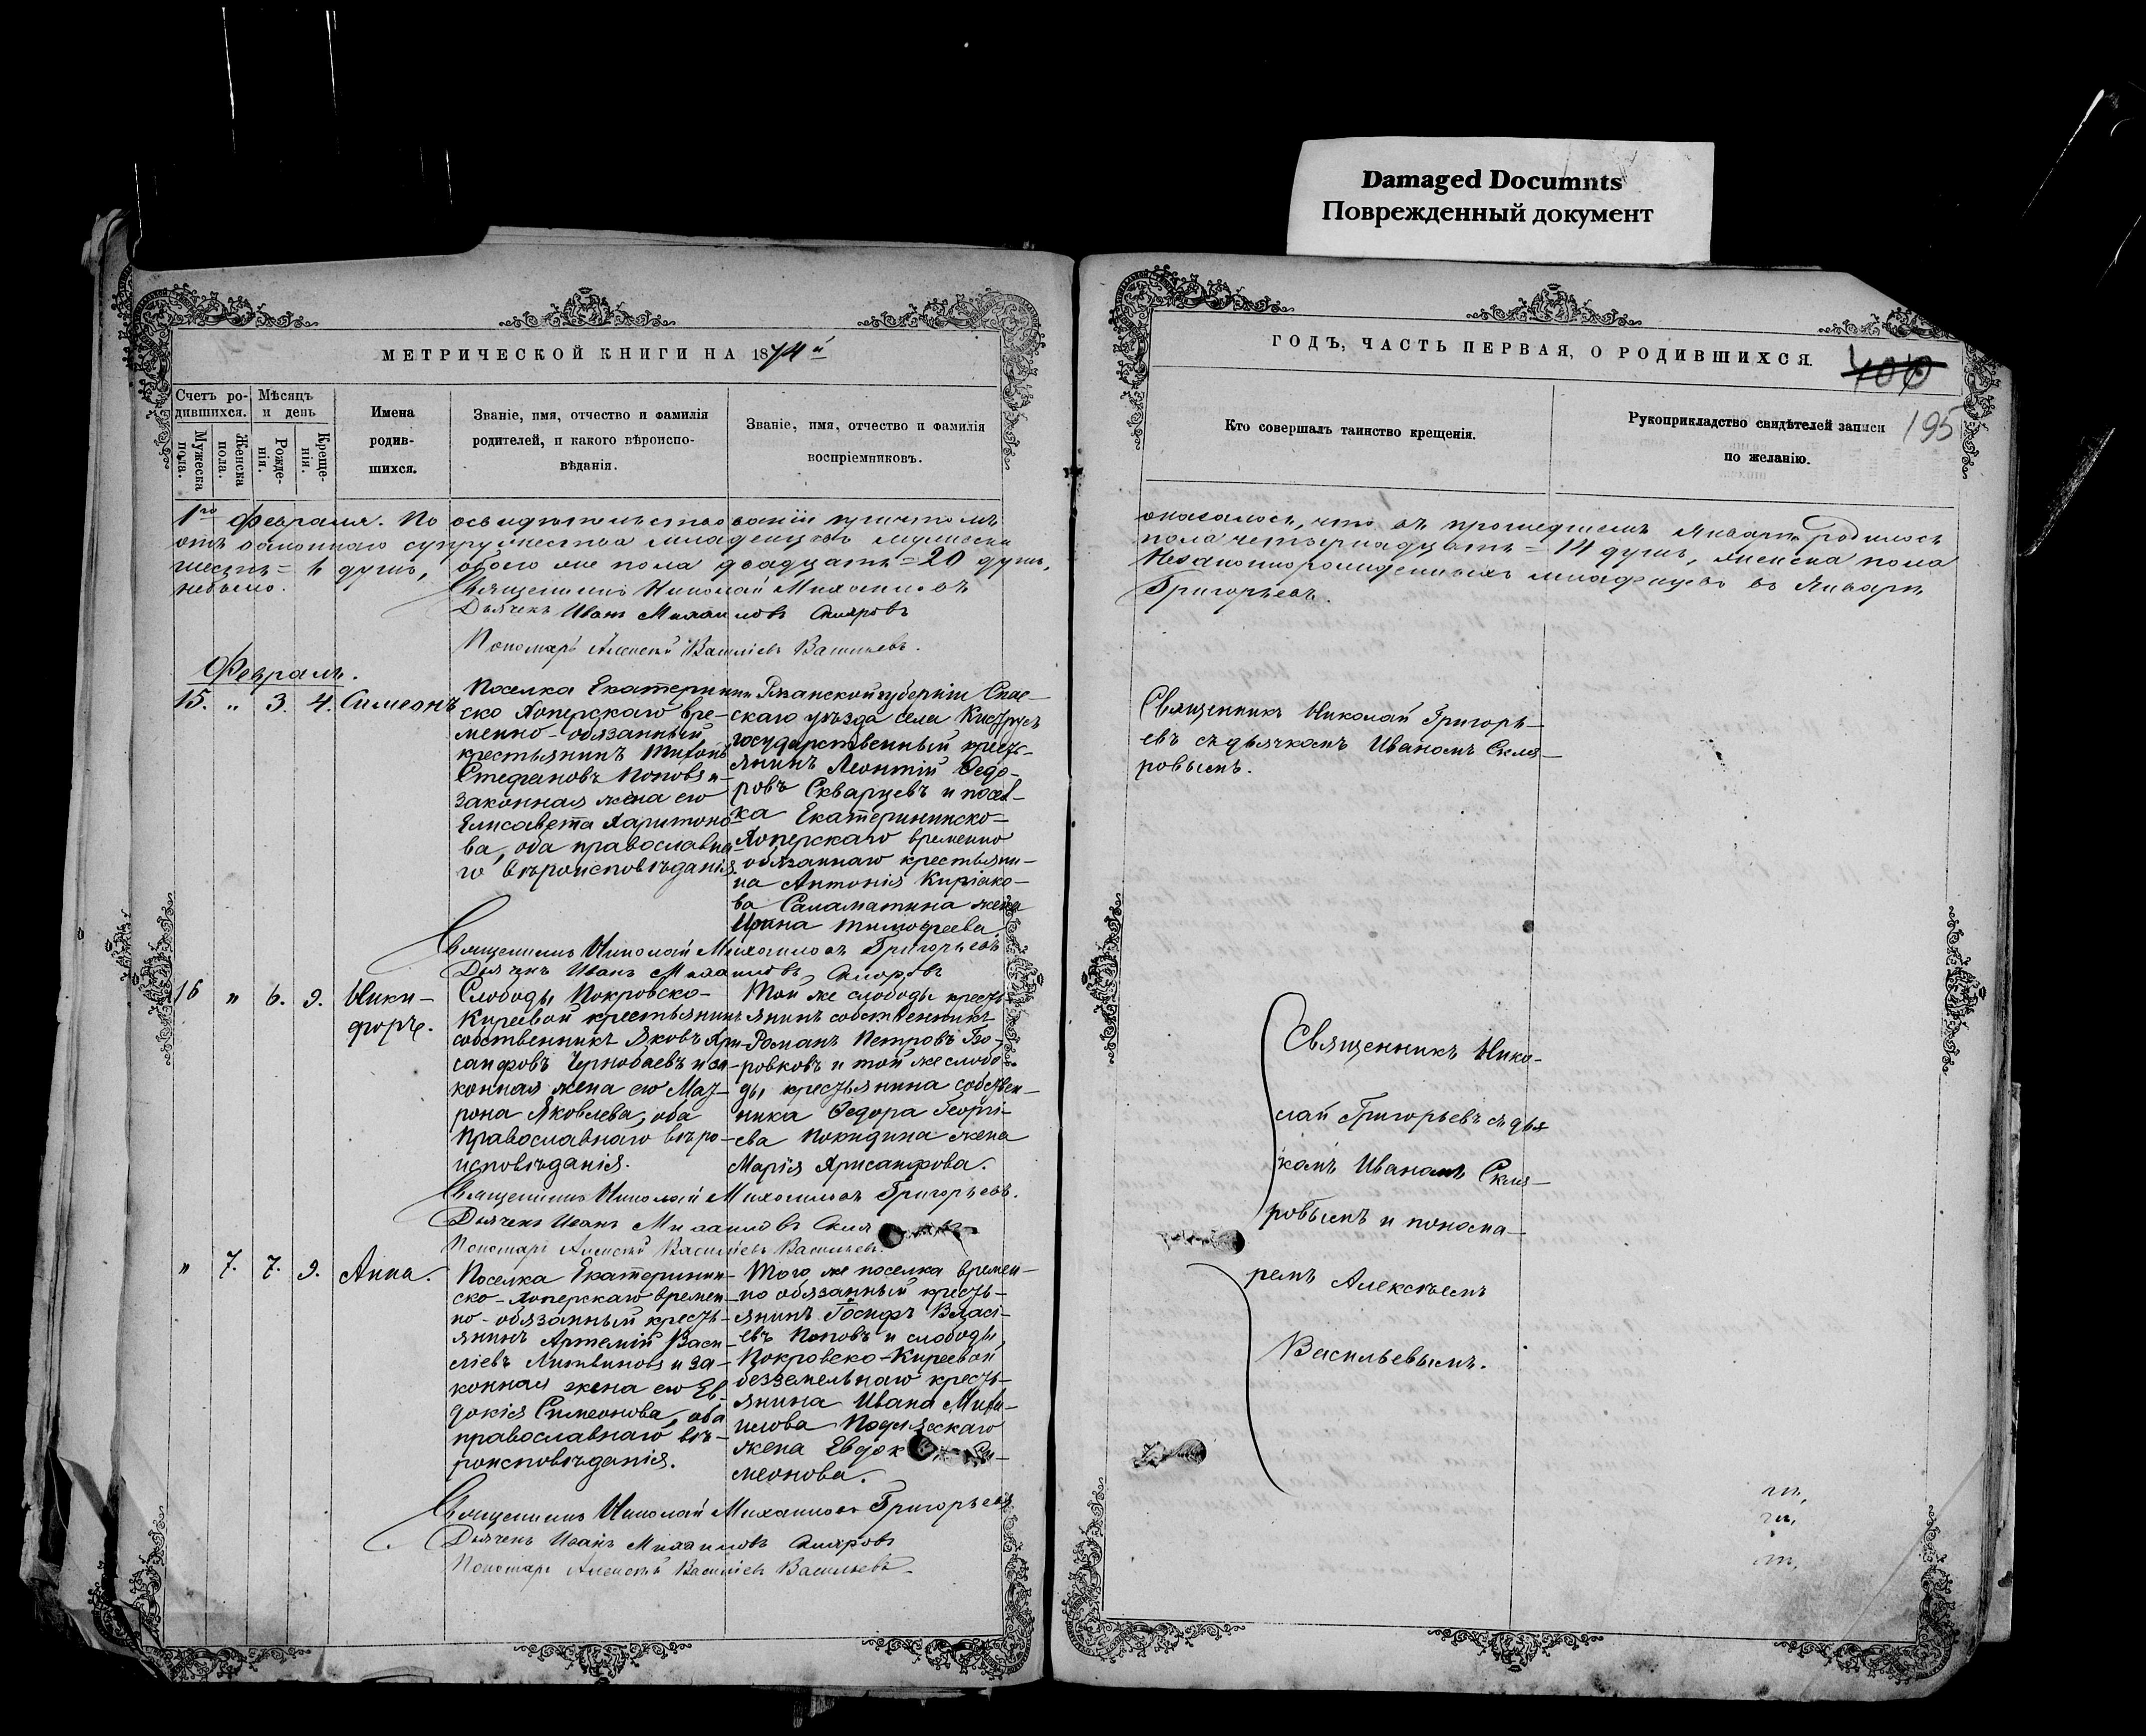 Damaged Documnts
Поврежденный документ
МЕТРИЧЕСКОЙ КНИГИ НА 1874й
Счетъ ро-
дившихся.
Мужеска пола.
Женска пола.
Мѣсяцъ
и день
Рожде-
нія.
Креще-
нія.
Имена
родив-
шихся.
Званіе, имя, отчество и фамилія
родителей, и какого вѣроиспо-
вѣданія.
Званіе, имя, отчество и фамилія
воспріемниковъ.
1го Февраля. По освидѣтельствованіи причтомъ
отъ законнаго супружества младенцевъ мужеска
шесть = 6 душъ, обоего же пола двадцать = 20 душъ,
небыло.
Священникъ Николай Михаиловъ
Дьячекъ Иванъ Михаиловъ Скляровъ
Пономарь Алексѣй Василіевъ Васильевъ.
Февраль.
15. " 3. 4. Симеонъ
Поселка Екатеринин-
ско Хоперскаго вре-
менно-обязанный
крестьянинъ Тихонъ
Стефановъ Поповъ и
законная жена его
Елисавета Харитоно-
ва, оба православна-
го вѣроисповѣданія.
Рязанской губерніи Спас-
скаго уѣзда села Киструсъ
государственный крест-
янинъ Леонтій Ѳедо-
ровъ Скварцевъ и посел-
ка Екатерининско-
Хоперскаго временно
обязаннаго крестьяни-
на Антонія Киріако-
ва Саламатина жена
Ирина Тимофеева.
Священникъ Николай Михаиловъ Григорьевъ
Дьячекъ Иванъ Михаиловъ Скляровъ
16 " 6. 9. Ники-
форъ.
Слободы Покровско-
Киреевой крестьянинъ
собственникъ Яковъ Хри-
санфовъ Чернобаевъ и за-
конная жена его Мат-
рона Яковлева, оба
православнаго вѣро-
исповѣданія.
Той же слободы крест-
янинъ собственникъ
Романъ Петровъ Бо-
ровковъ и той же слобо-
ды крестьянина собствен-
ника Ѳедора Георгі-
ева Покидина жена
Марія Хрисанфова.
Священникъ Николай Михаиловъ Григорьевъ.
Дьячекъ Иванъ Михаиловъ
Пономарь Алексѣй Василіевъ Васильевъ.
" 7. 7. 9. Анна.
Поселка Екатеринин-
ско-Хоперскаго времен-
но-обязанный кресть-
янинъ Артемій Васи-
ліевъ Литвиновъ и за-
конная жена его Ев-
докія Симеонова, оба
православнаго вѣ-
роисповѣданія.
Того же поселка времен-
но обязанный кресть-
янинъ Іосифъ Власі-
евъ Поповъ и слободы
Покровско-Киреевой
безземельнаго кресть-
янина Ивана Михаи-
лова жена
меонова.
Священникъ Николай Михаиловъ Григорьевъ
Дьячекъ Иванъ Михаиловъ Скляровъ
Пономарь Алексѣй Василіевъ Васильевъ
ГОДЪ, ЧАСТЬ ПЕРВАЯ, О РОДИВШИХСЯ.
400
195
Кто совершалъ таинство крещенія.
Рукоприкладство свидѣтелей записи
по желанію.
оказалось, что въ прошедшемъ Январѣ родилось
пола четырнадцать = 14 душъ, женска пола
Незаконнорожденныхъ младенцевъ въ Январѣ
Григорьевъ.
Священникъ Николай Григорь-
евъ съ дьячкомъ Иваномъ Скля-
ровымъ.
Священникъ Нико-
лай Григорьевъ съ дья-
комъ Иваномъ Скля-
ровымъ и понома-
ремъ Алексѣемъ
Васильевымъ.